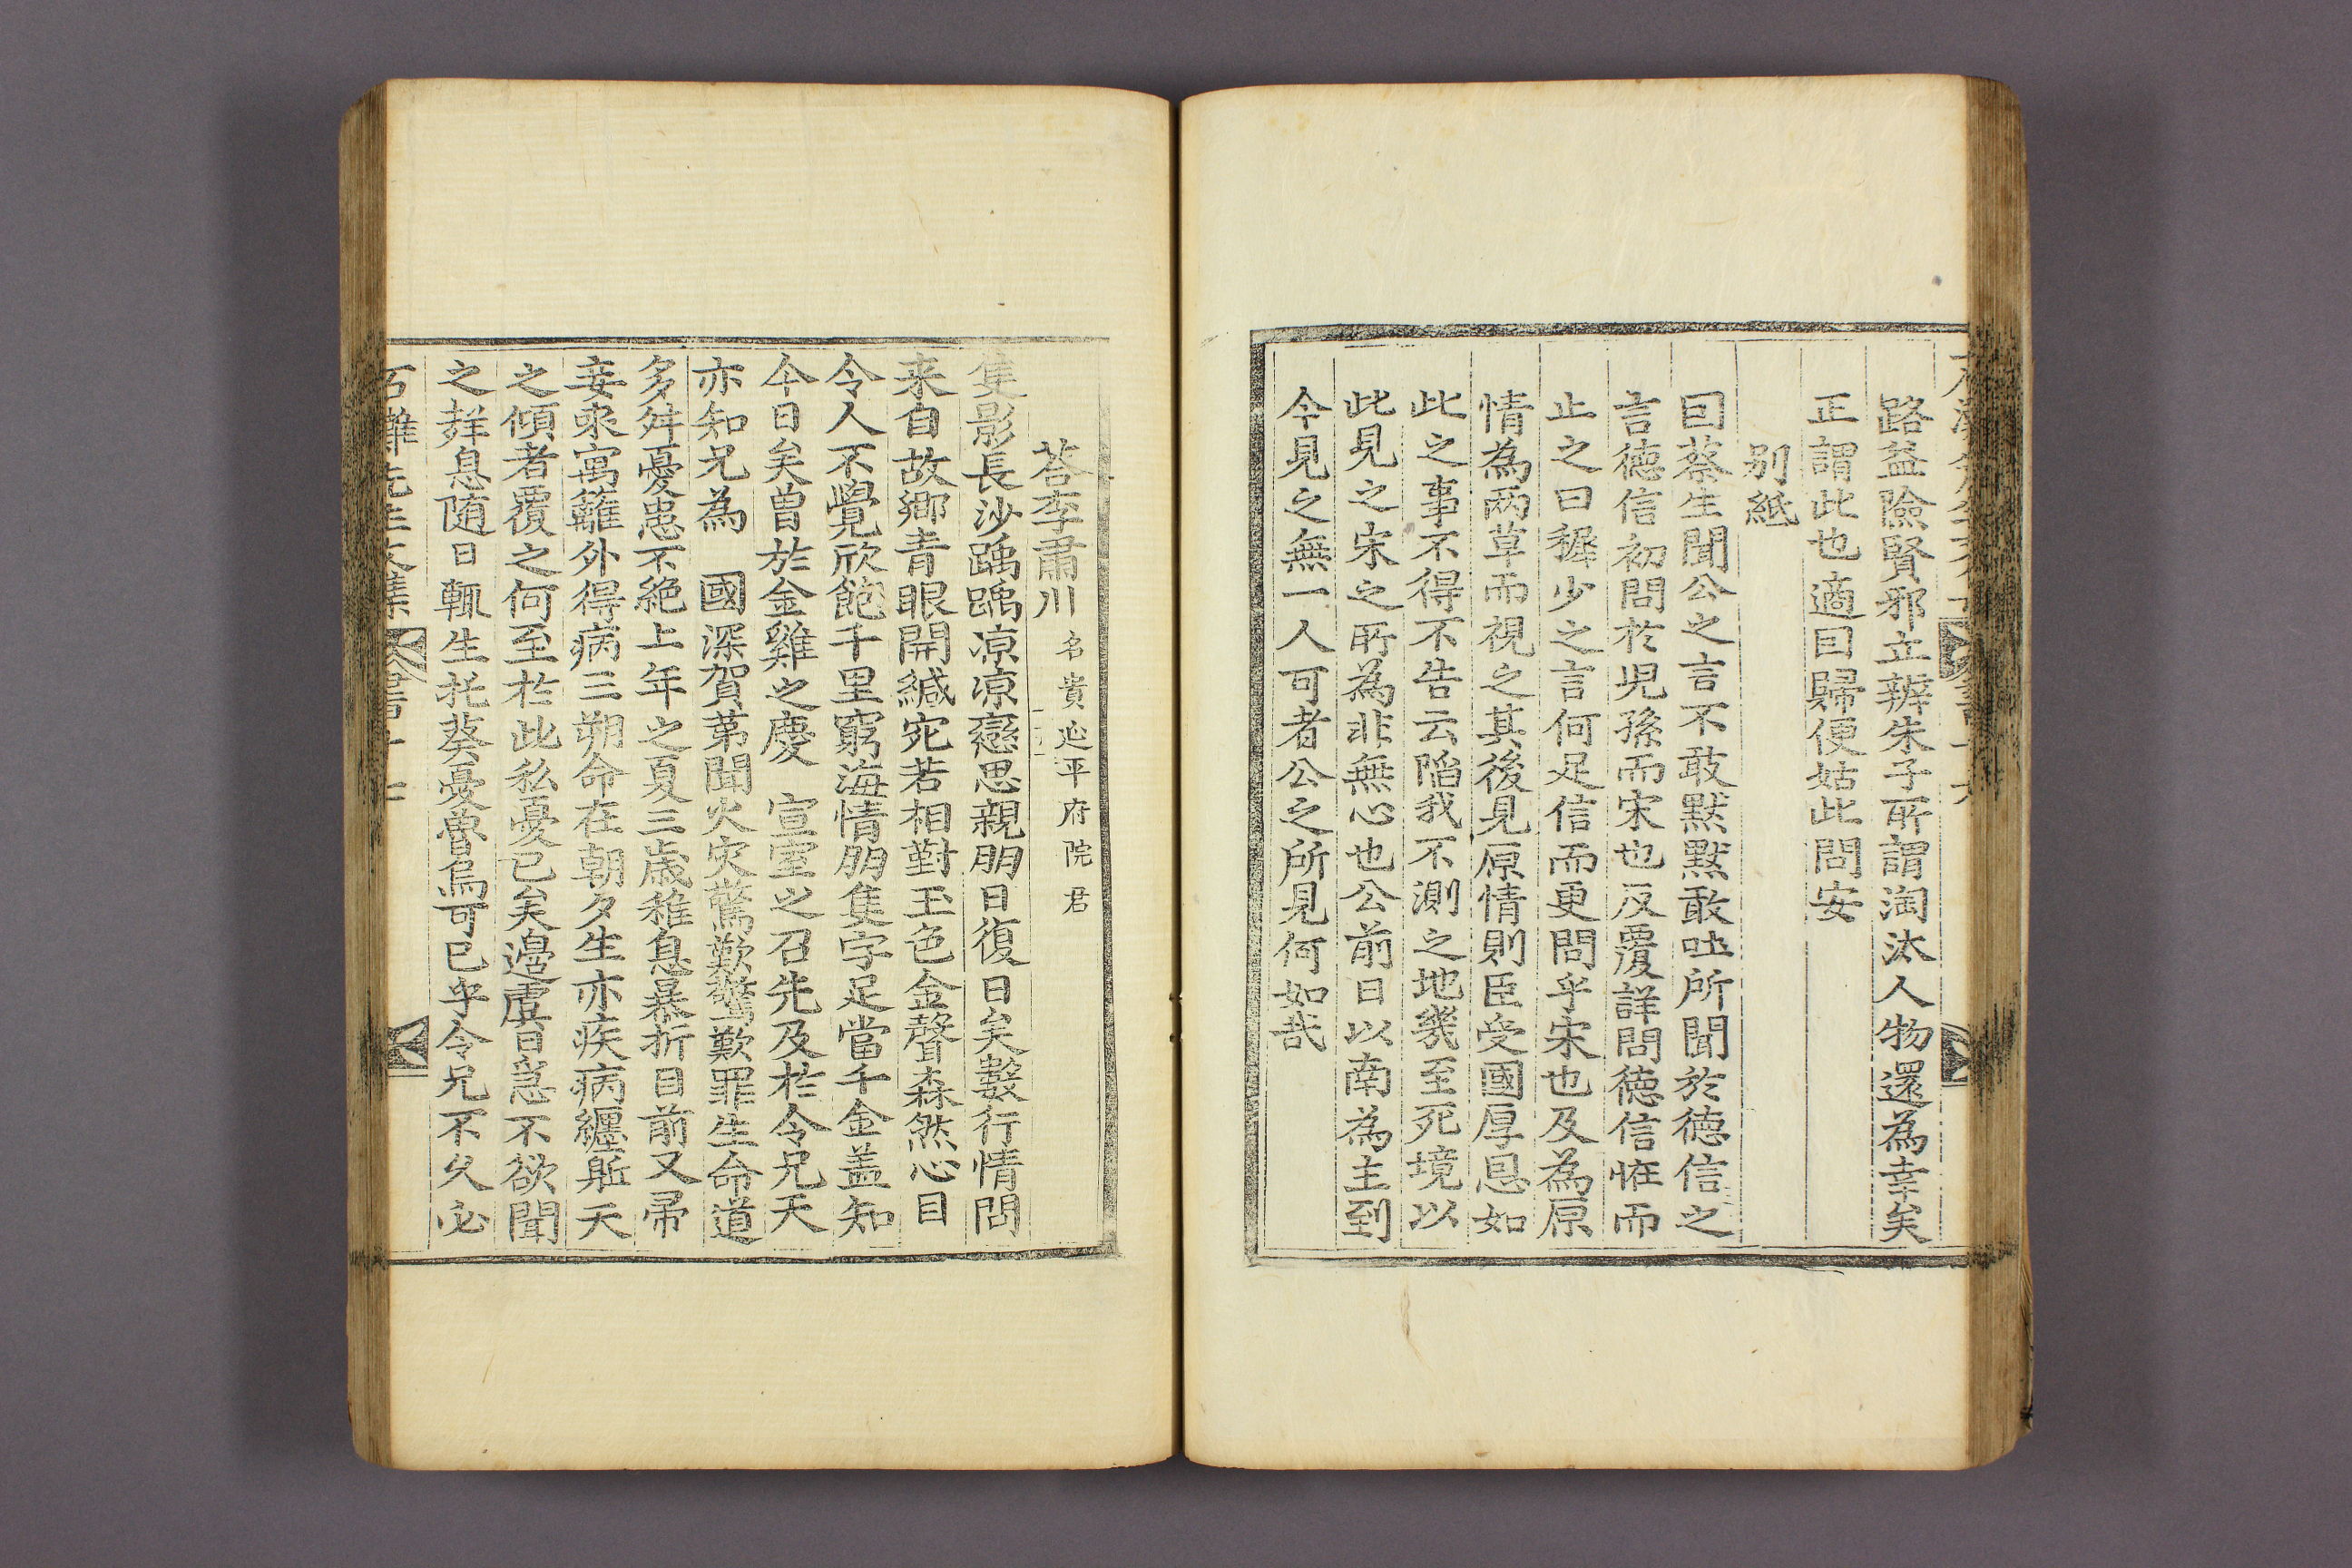 路益險賢邪立辨朱子所謂淘汰人物還為幸矣
正謂此也適因歸便姑此問安
別紙
因蔡生聞公之言不敢默默敢吐所聞於德信之
言德信初問於児孫而宋也反覆詳問德信恠而
止之曰穉少之言何足信而更問乎宋也及為原
情為兩草而視之其後見原情則臣受國厚恩如
此之事不得不告云陷我不測之地幾至死境以
此見之宋之所為非無心也公前日以南為主到
今見之無一人可者公之所見何如哉
荅李肅川名貴延平府院君
隻影長沙踽踽凉凉戀思親朋日復日矣數行情問
来自故鄉青眼開緘宛若相對玉色金聲森然心目
令人不覺欣飽千里窮海情朋隻字足當千金盖知
今日矣曽於金雞之慶 宣室之召先及於令兄天
亦知兄為 國深賀苐聞火灾驚歎驚歎罪生命道
多舛憂患不絶上年之夏三歲稚息暴折目前又帚
妾來寓籬外得病三朔命在朝夕生亦疾病纏軀天
之傾者覆之何至於此私憂已矣邉虞百急不欲聞
之羘息随日輒生托葵憂魯烏可已乎令兄不久必
石灘先生文集 卷 書 十七